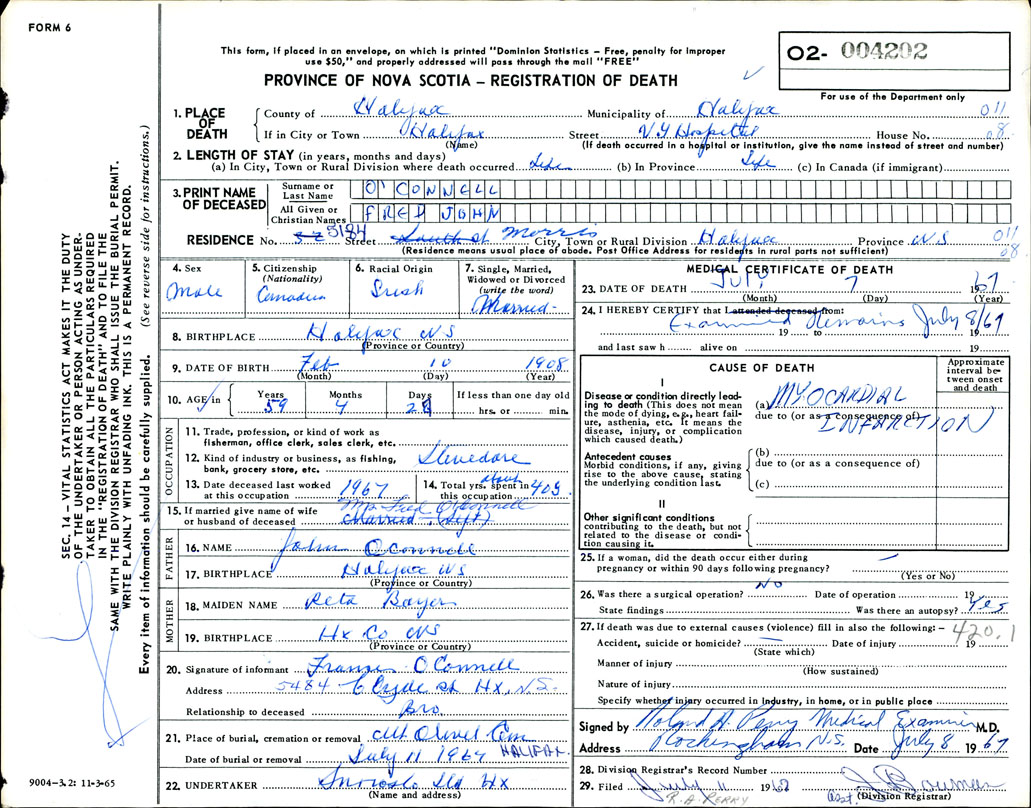 FORM 6
This form, if placed in an envelope, on which is printed "Dominion Statistics – Free, penalty for improper
use $50," and properly addressed will pass through the mail "FREE"
O2- 004202
For use of the Department only
PROVINCE OF NOVA SCOTIA – REGISTRATION OF DEATH
SEC. 14 – VITAL STATISTICS ACT MAKES IT THE DUTY
OF THE UNDERTAKER OR PERSON ACTING AS UNDER-
TAKER TO OBTAIN ALL THE PARTICULARS REQUIRED
IN THE "REGISTRATION OF DEATH" AND TO FILE THE
SAME WITH THE DIVISION REGISTRAR WHO SHALL ISSUE THE BURIAL PERMIT.
WRITE PLAINLY WITH UNFADING INK. THIS IS A PERMANENT RECORD.
Every item of information should be carefully supplied. (See reverse side for instructions.)
1. PLACE OF DEATH
County of Halifax Municipality of Halifax 011
If in City or Town Halifax Street V.G Hospital House No. 08
(Name) (If death occurred in a hospital or institution, give the name instead of street and number)
2. LENGTH OF STAY (in years, months and days)
(a) In City, Town or Rural Division where death occurred Life (b) In Province Life (c) In Canada (if immigrant)
3. PRINT NAME OF DECEASED
Surname or Last Name O'CONNELL
All Given or Christian Names FRED JOHN
RESIDENCE No. 5184 Street South St Morris City, Town or Rural Division Halifax Province NS 011
(Residence means usual place of abode. Post Office Address for residents in rural parts not sufficient) 08
4. Sex Male
5. Citizenship (Nationality) Canadian
6. Racial Origin Irish
7. Single, Married, Widowed or Divorced (write the word) Married
8. BIRTHPLACE Halifax NS
(Province or Country)
9. DATE OF BIRTH Feb 10 1908
(Month) (Day) (Year)
10. AGE in Years 59 Months 4 Days 28 If less than one day old hrs. or min.
OCCUPATION
11. Trade, profession, or kind of work as
fisherman, office clerk, sales clerk, etc.
12. Kind of industry or business, as fishing,
bank, grocery store, etc. Stevedore
13. Date deceased last worked at this occupation 1967
14. Total yrs. spent in this occupation about 40
15. If married give name of wife
or husband of deceased Mrs Fred O'Connell
Married
FATHER
16. NAME John OConnell
17. BIRTHPLACE Halifax NS
(Province or Country)
MOTHER
18. MAIDEN NAME Reta
19. BIRTHPLACE Hx Co NS
(Province or Country)
20. Signature of informant Francis O'Connell
Address 5484 Clyde st Hx, N.S.
Relationship to deceased Bro
21. Place of burial, cremation or removal Mt Olivet Cem
Date of burial or removal July 11 1967 HALIFAX
22. UNDERTAKER Ltd Hx
(Name and address)
9004–3.2: 11-3-65
MEDICAL CERTIFICATE OF DEATH
23. DATE OF DEATH July 7 1967
(Month) (Day) (Year)
24. I HEREBY CERTIFY that I attended deceased from:
Examined Remains July 8/67
19 to 19
and last saw h alive on 19
CAUSE OF DEATH
Approximate interval between onset and death
I
Disease or condition directly lead-
ing to death (This does not mean
the mode of dying, e.g., heart fail-
ure, asthenia, etc. It means the
disease, injury, or complication
which caused death.)
(a) MYOCARDIAL
due to (or as a consequence of)
INFARCTION
Antecedent causes
Morbid conditions, if any, giving
rise to the above cause, stating
the underlying condition last.
(b)
due to (or as a consequence of)
(c)
II
Other significant conditions
contributing to the death, but not
related to the disease or condi-
tion causing it.
25. If a woman, did the death occur either during
pregnancy or within 90 days following pregnancy? –
(Yes or No)
26. Was there a surgical operation? No Date of operation 19
State findings Was there an autopsy? Yes
27. If death was due to external causes (violence) fill in also the following:– 420.1
Accident, suicide or homicide? – Date of injury 19
(State which)
Manner of injury
(How sustained)
Nature of injury
Specify whether injury occurred in Industry, in home, or in public place
Signed by Roland A. Perry Medical Examiner M.D.
Address Rockingham N.S. Date July 8 1967
28. Division Registrar's Record Number
29. Filed July 11 1967
R.A. PERRY Asst. (Division Registrar)